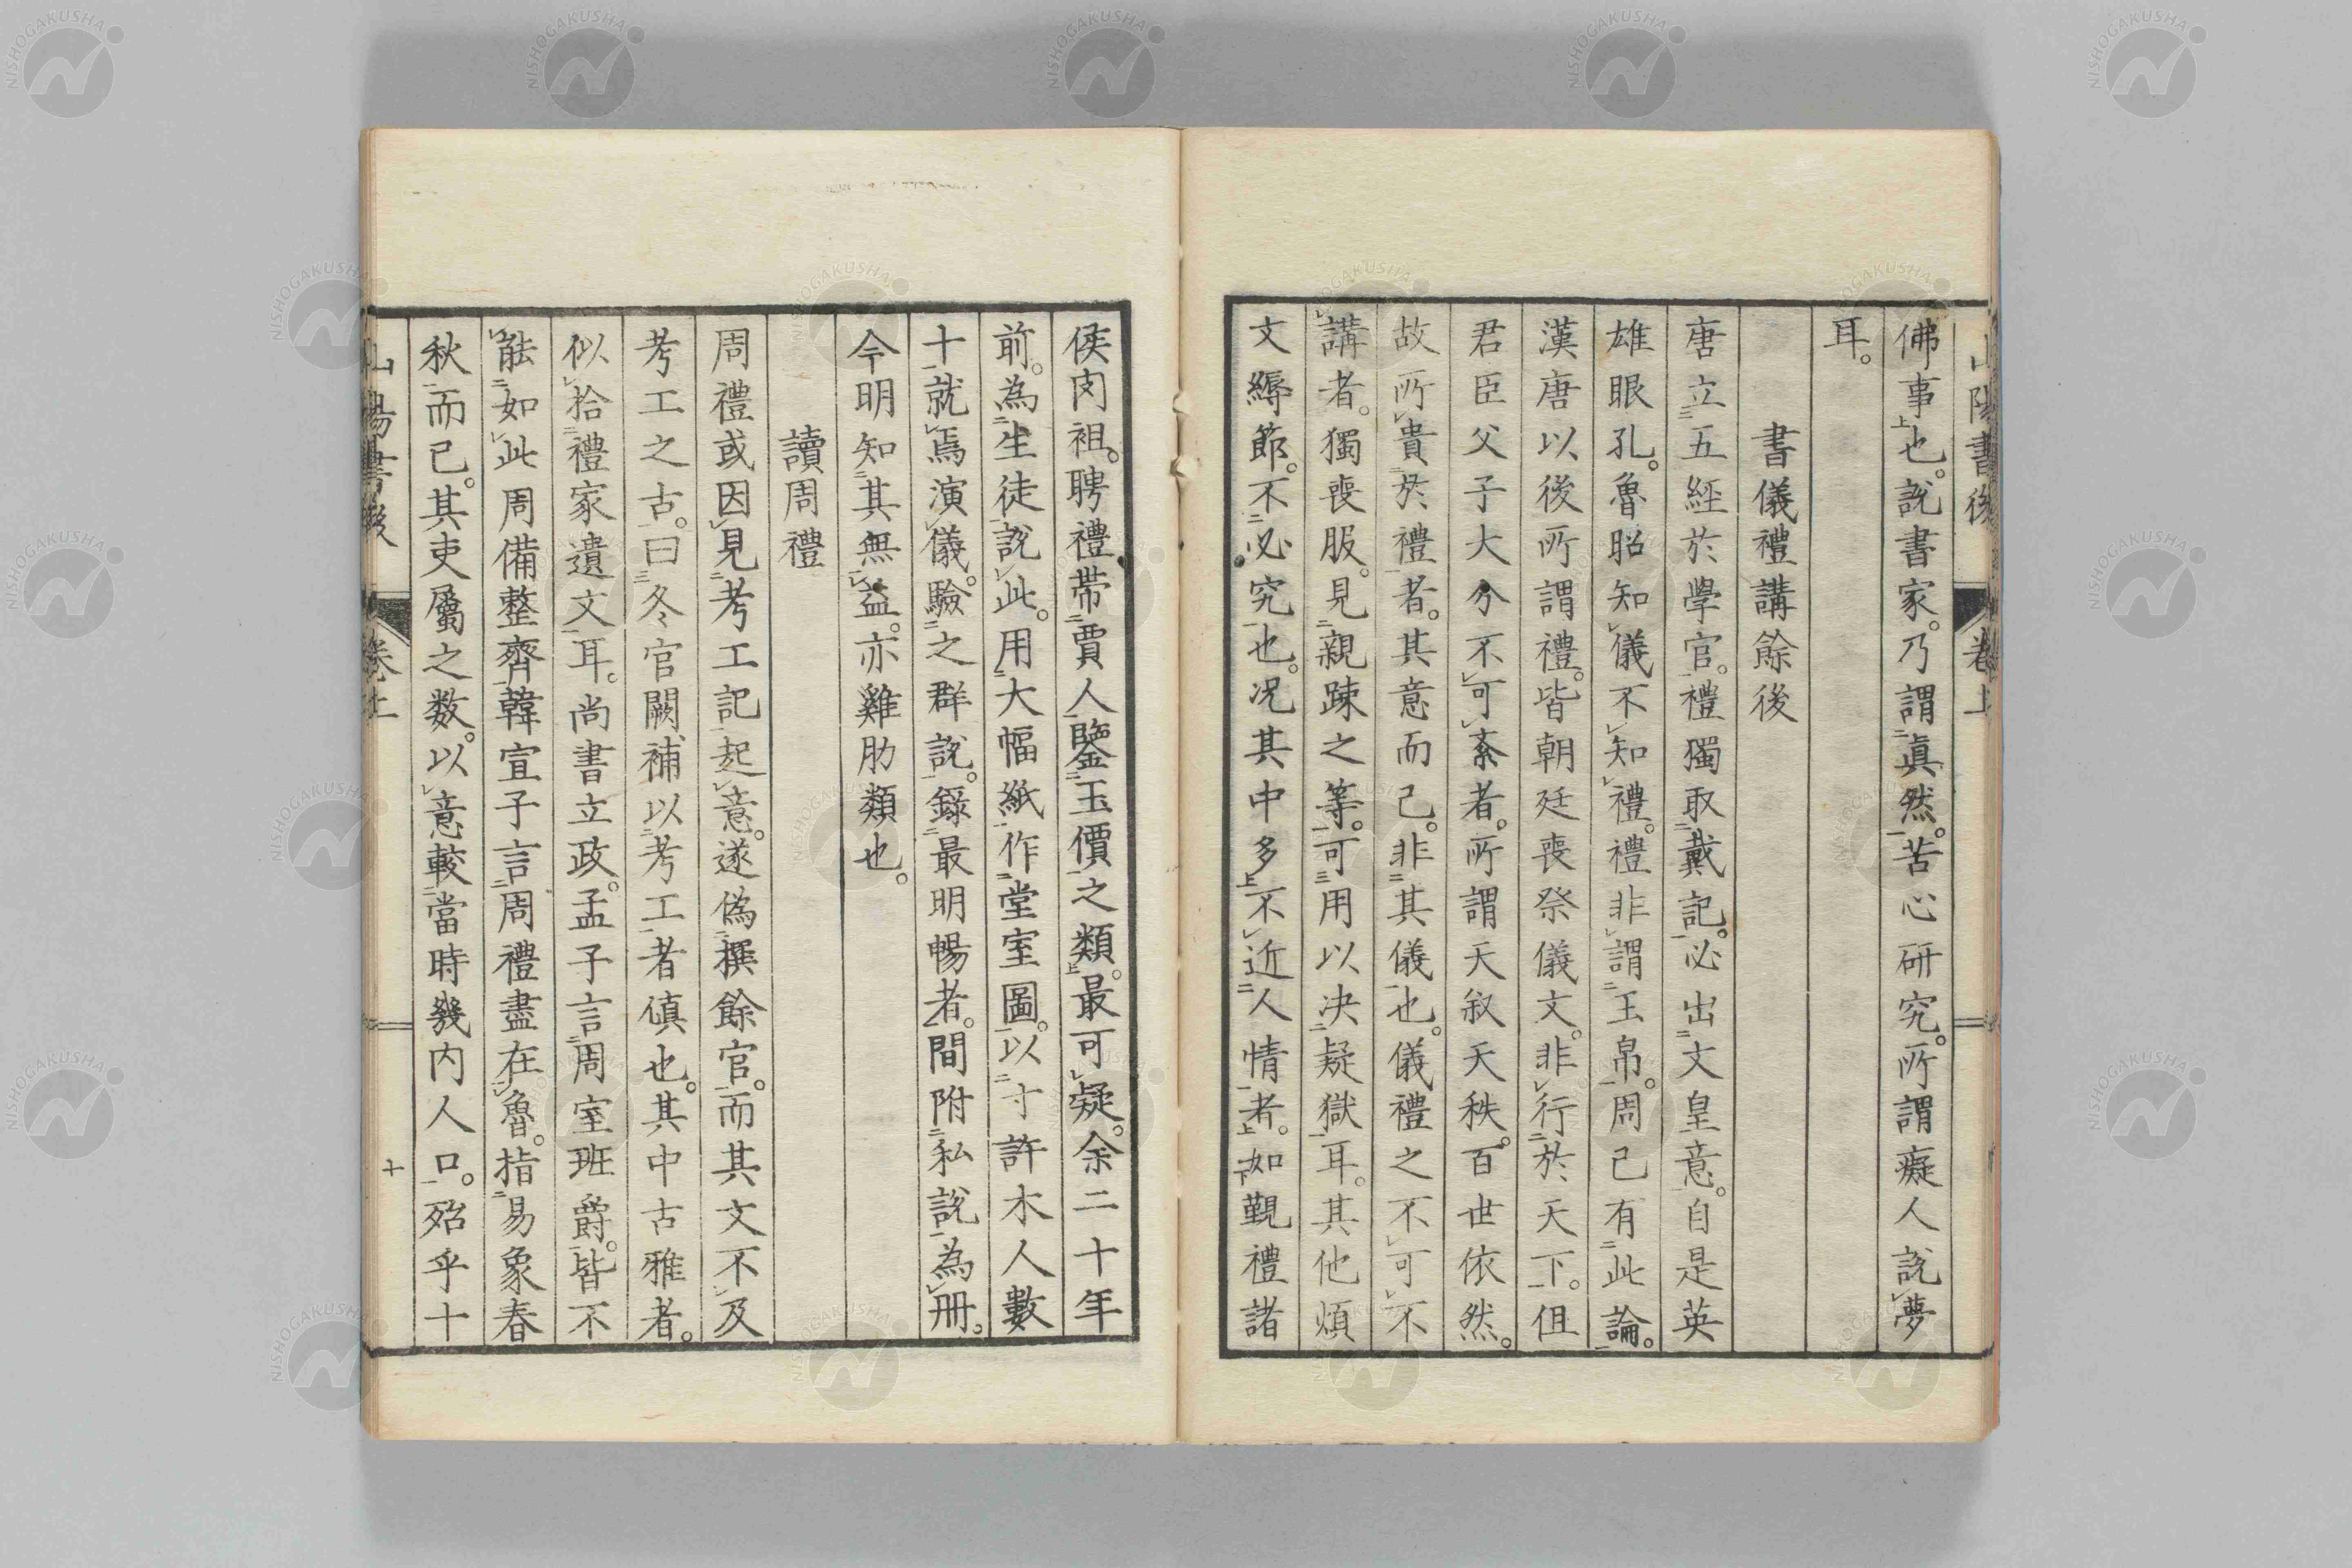 山陽書後 卷上
佛事也。說書家。乃謂眞然。苦心研究。所謂癡人說夢
耳。
書儀禮講餘後
唐立五經於學官。禮獨取戴記。必出文皇意。自是英
雄眼孔。魯昭知儀不知禮。禮非謂玉帛。周已有此論。
漢唐以後所謂禮。皆朝廷喪祭儀文。非行於天下。但
君臣父子大分不可紊者。所謂天叙天秩。百世依然。
故所貴於禮者。其意而已。非其儀也。儀禮之不可不
講者。獨喪服。見親疎之等。可用以决疑獄耳。其他煩
文縟節。不必究也。况其中多不近人情者。如覲禮諸
侯肉袒。聘禮帶賈人鑒玉價之類。最可疑。余二十年
前。為生徒說此。用大幅紙作堂室圖。以寸許木人數
十就焉演儀。驗之群說。錄最明暢者。間附私說為冊。
今明知其無益。亦雞肋類也。
讀周禮
周禮或因見考工記起意。遂偽撰餘官。而其文不及
考工之古。曰冬官闕補以考工者傎也。其中古雅者。
似拾禮家遺文耳。尚書立政。孟子言周室班爵。皆不
能如此周備整齊。韓宣子言周禮盡在魯。指易象春
秋而已。其吏屬之数。以意較當時畿内人口。殆乎十
山陽書後 卷上 十